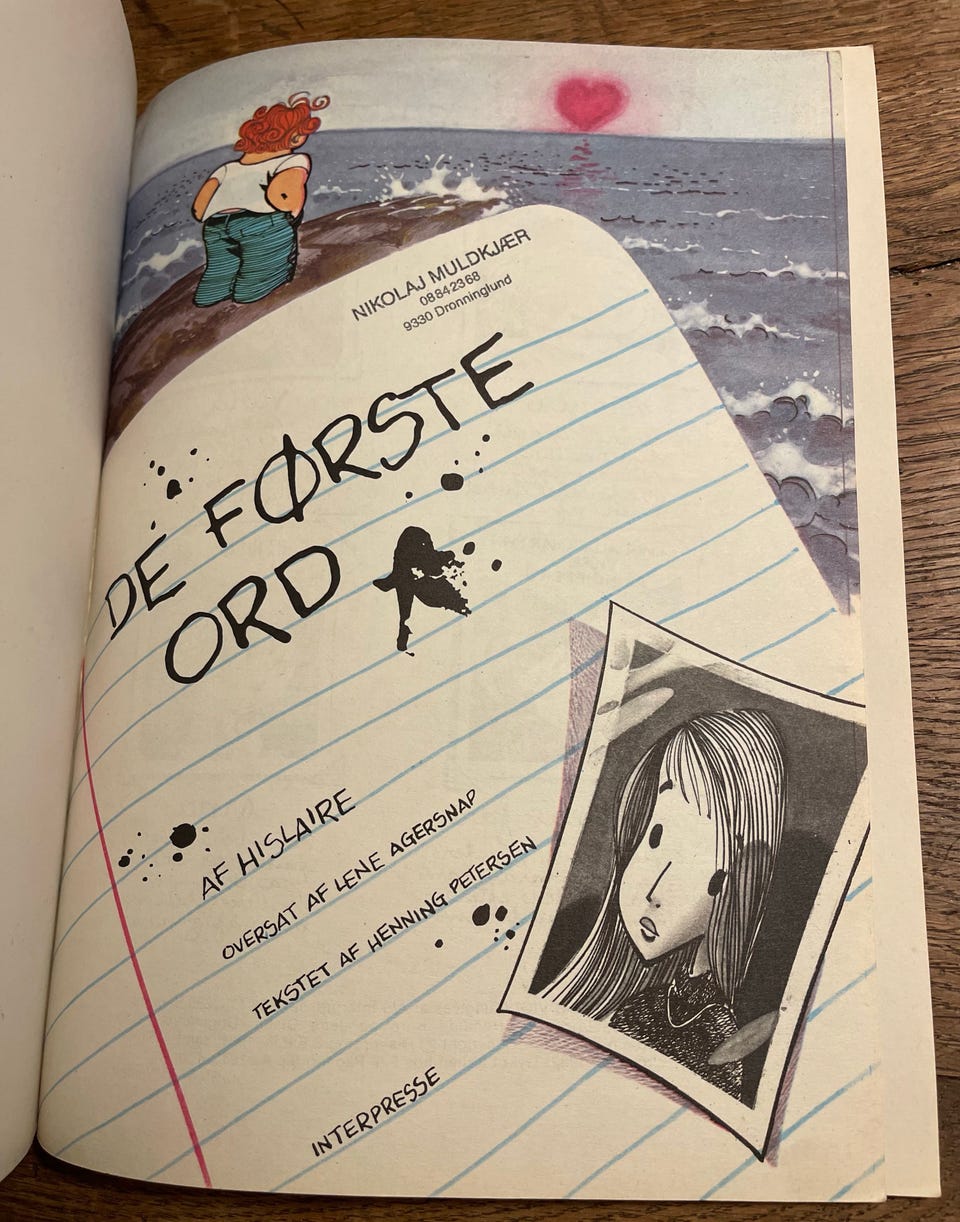 NIKOLAJ MULDKJÆR
08842368
9330 Dronninglund
DE FØRSTE
ORD
AF HISLAIRE
OVERSAT AF LENE AGERSNAP
TEKSTET AF HENNING PETERSEN
INTERPRESSE